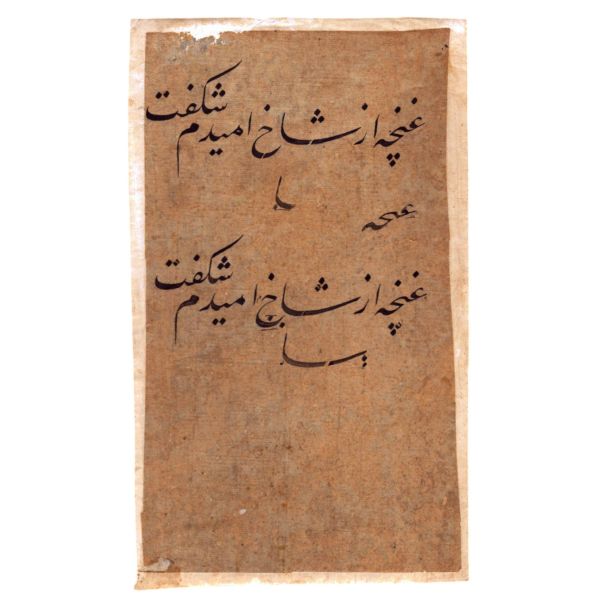 غنچه از شاخ امیدم شکفت
با
غنچه
غنچه از شاخ امیدم شکفت